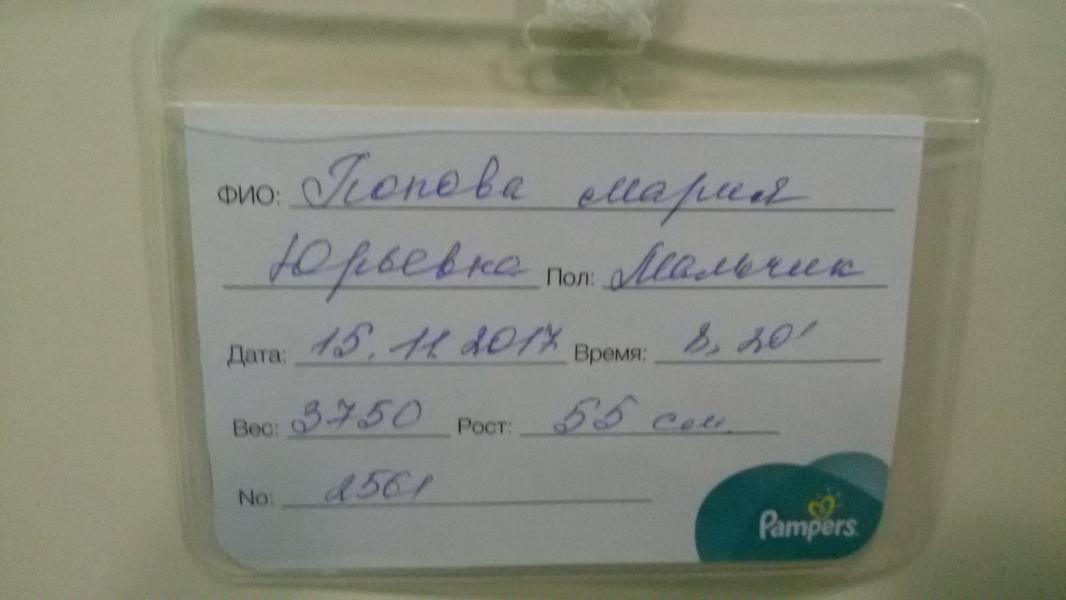 ФИО: Попова Мария
Юрьевна Пол: Мальчик
Дата: 15.11 2017 Время: 8, 20'
Вес: 3750 Рост: 55 см.
No: 2561
Pampers